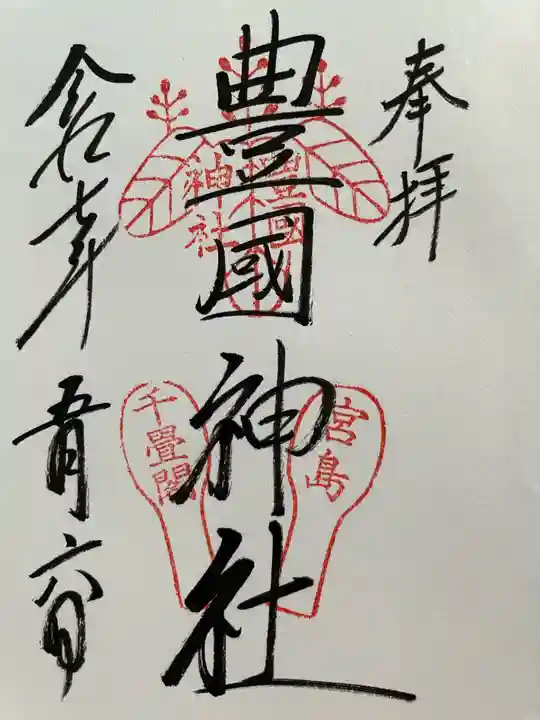 奉拝
豊國神社
豊國
神社
宮島
千疊閣
令和七年
五月六日